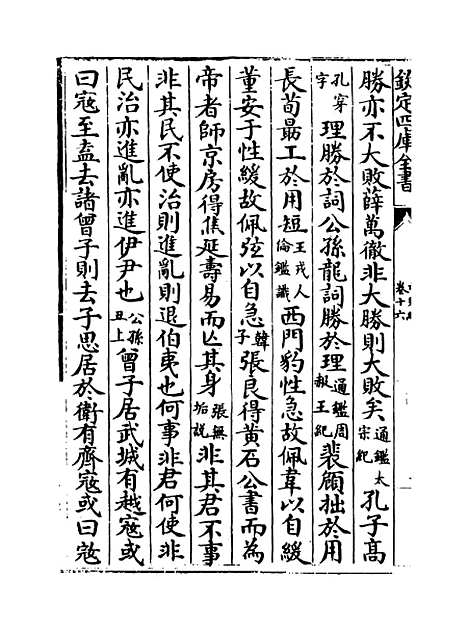 欽定四庫全書
卷十六
勝亦不大敗薛萬徹非大勝則大敗矣通鑑太宗紀孔子高
孔穿字理勝於詞公孫龍詞勝於理通鑑周赧王紀裴頠拙於用
長荀最工於用短王戎人倫鑑識西門豹性急故佩韋以自緩
董安于性緩故佩弦以自急韓子張良得黄石公書而為
帝者師京房得焦延壽易而亡其身張無垢說非其君不事
非其民不使治則進亂則退伯夷也何事非君何使非
民治亦進亂亦進伊尹也公孫丑上曾子居武城有越寇或
曰寇至盍去諸曾子則去子思居於衛有齊寇或曰寇